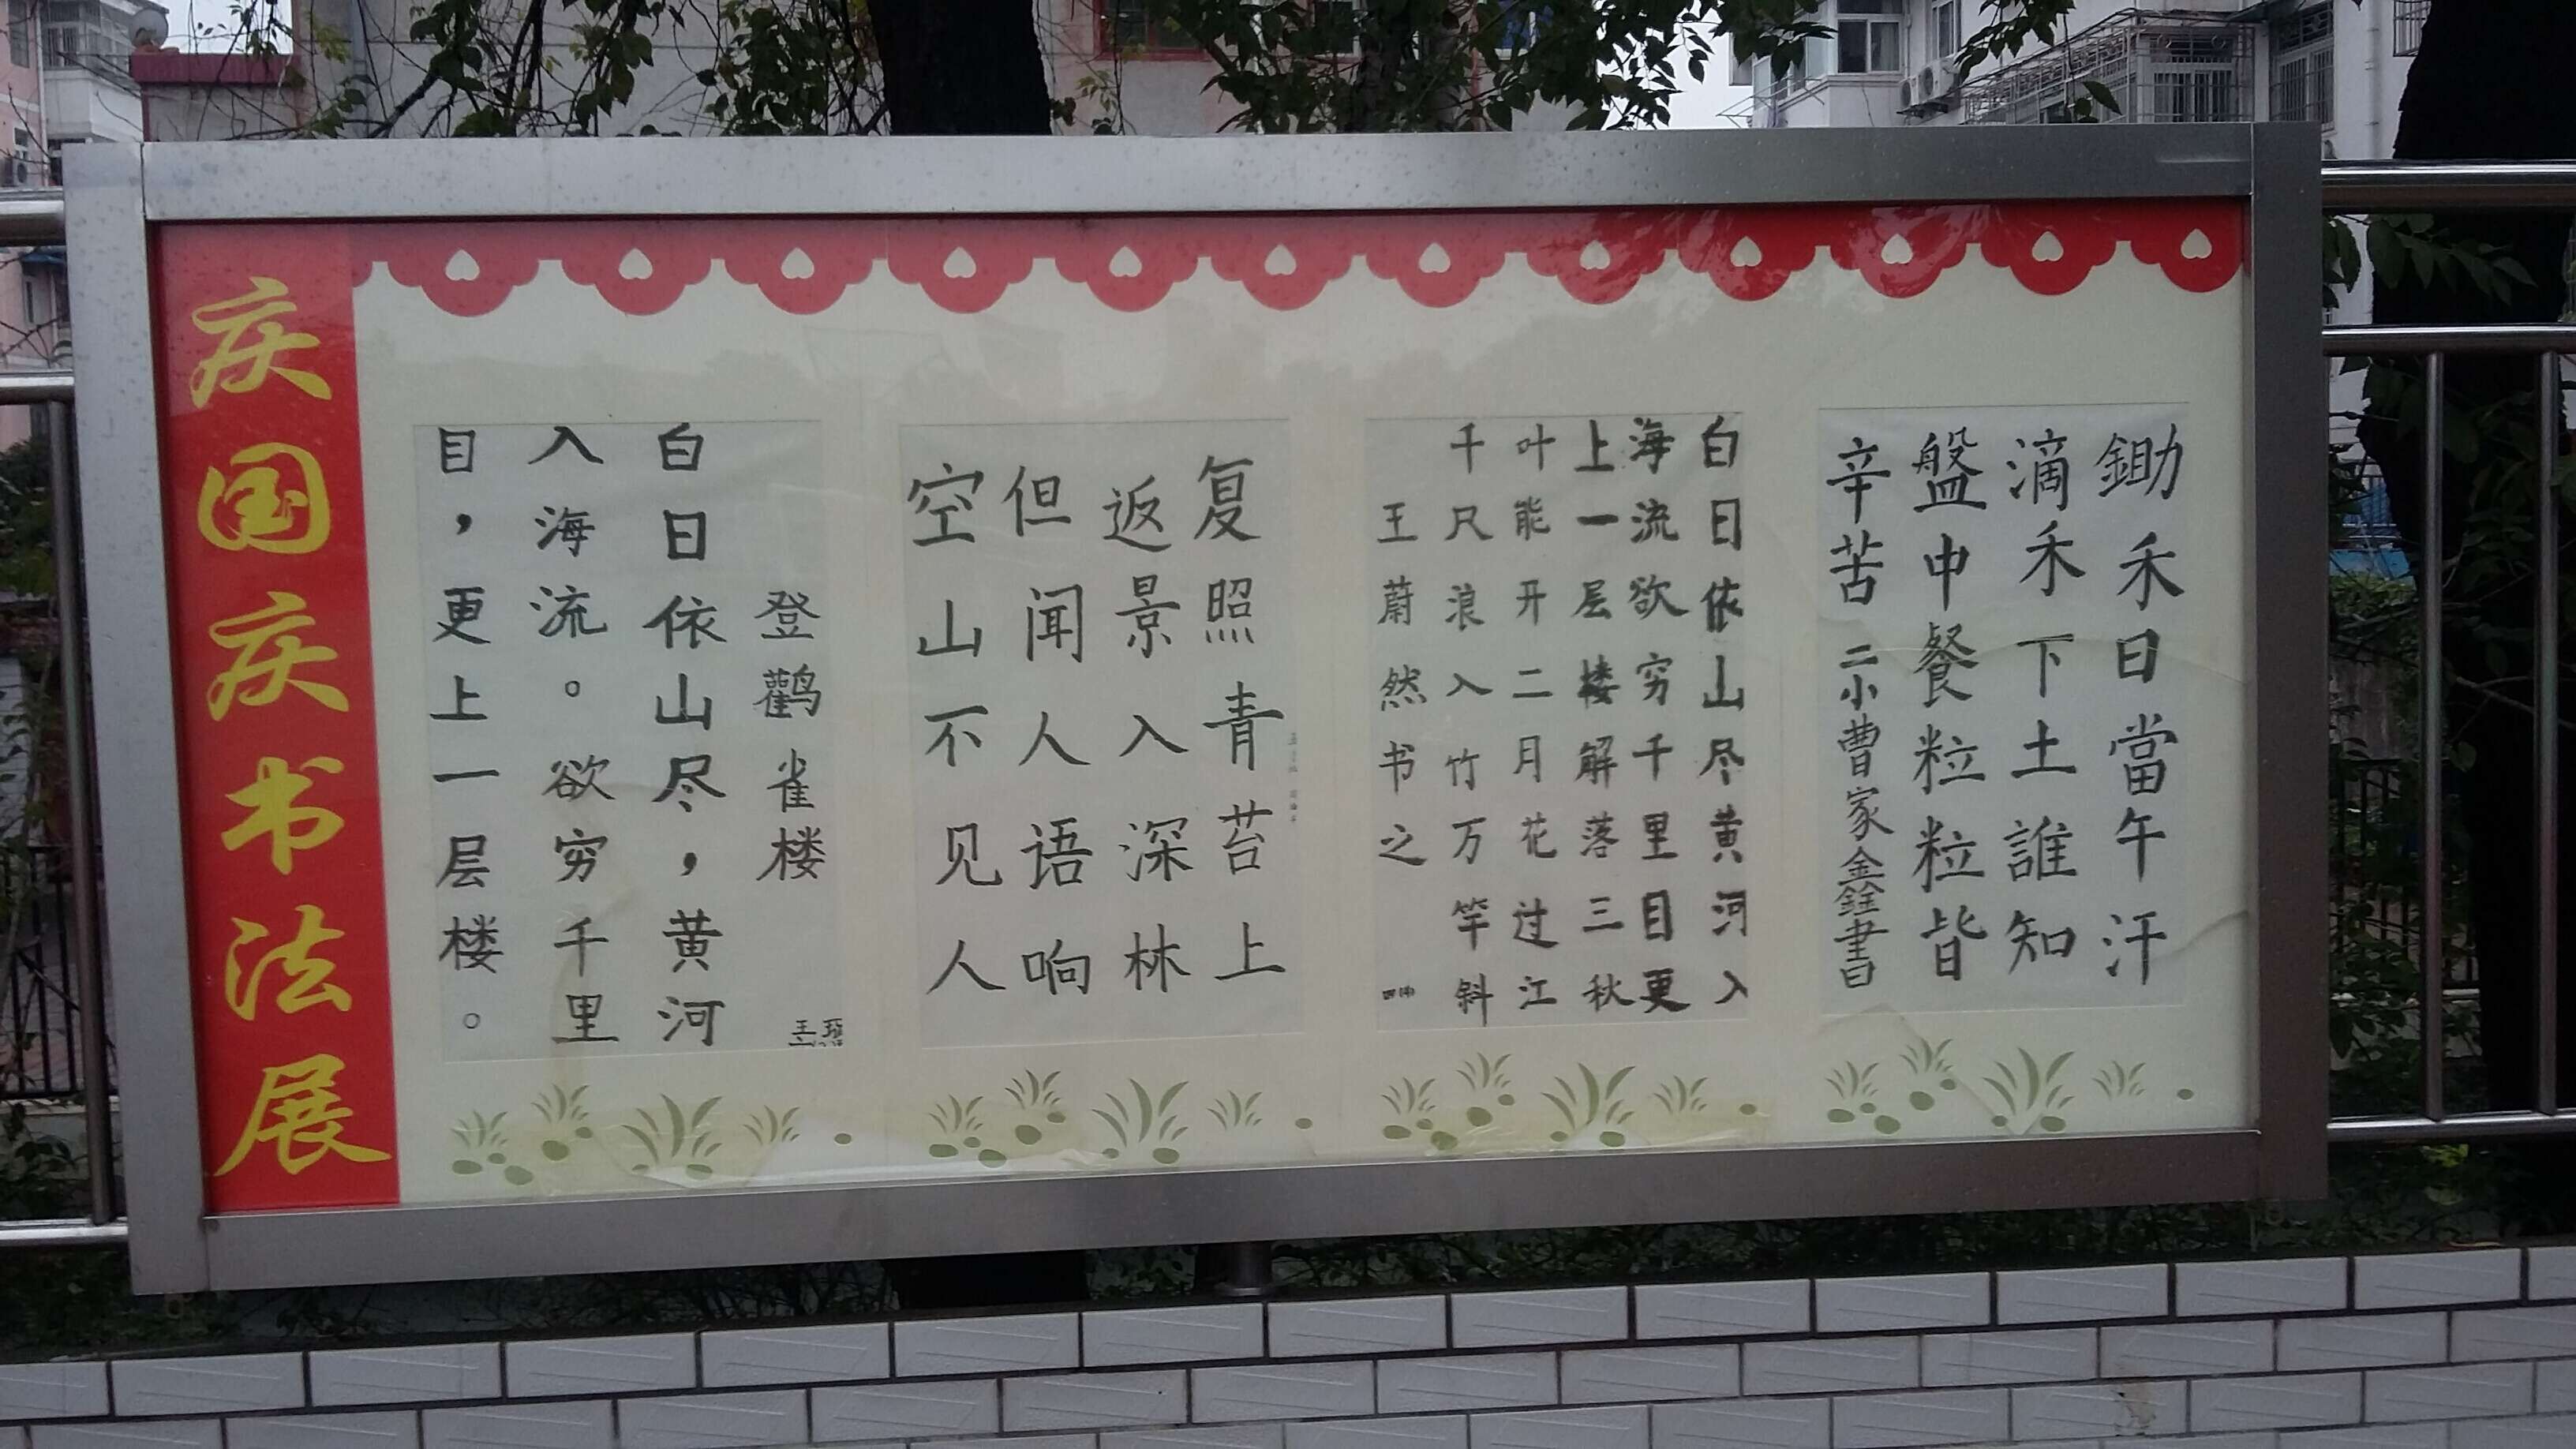 庆国庆书法展
登鹳雀楼
白日依山尽，黄河
入海流。欲穷千里
目，更上一层楼。
空山不见人
但闻人语响
返景入深林
复照青苔上
白日依山尽黄河入
海流欲穷千里目更
上一层楼解落三秋
叶能开二月花过江
千尺浪入竹万竿斜
王蔚然书之
鋤禾日當午汗
滴禾下土誰知
盤中餐粒粒皆
辛苦 二小曹家書